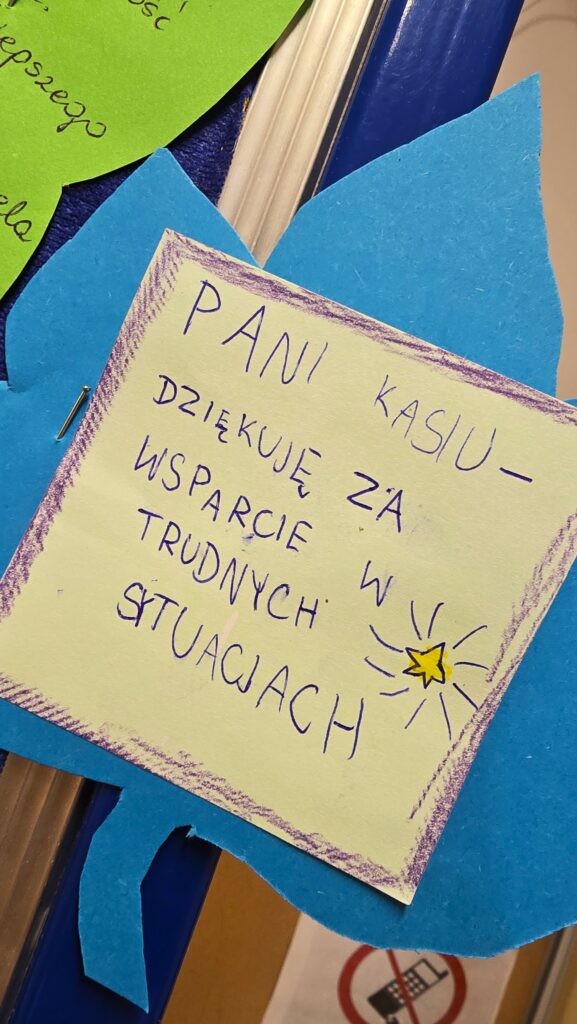 ość
lepszego
PANI KASIU-
DZIĘKUJĘ ZA
WSPARCIE W
TRUDNYCH
SYTUACJACH